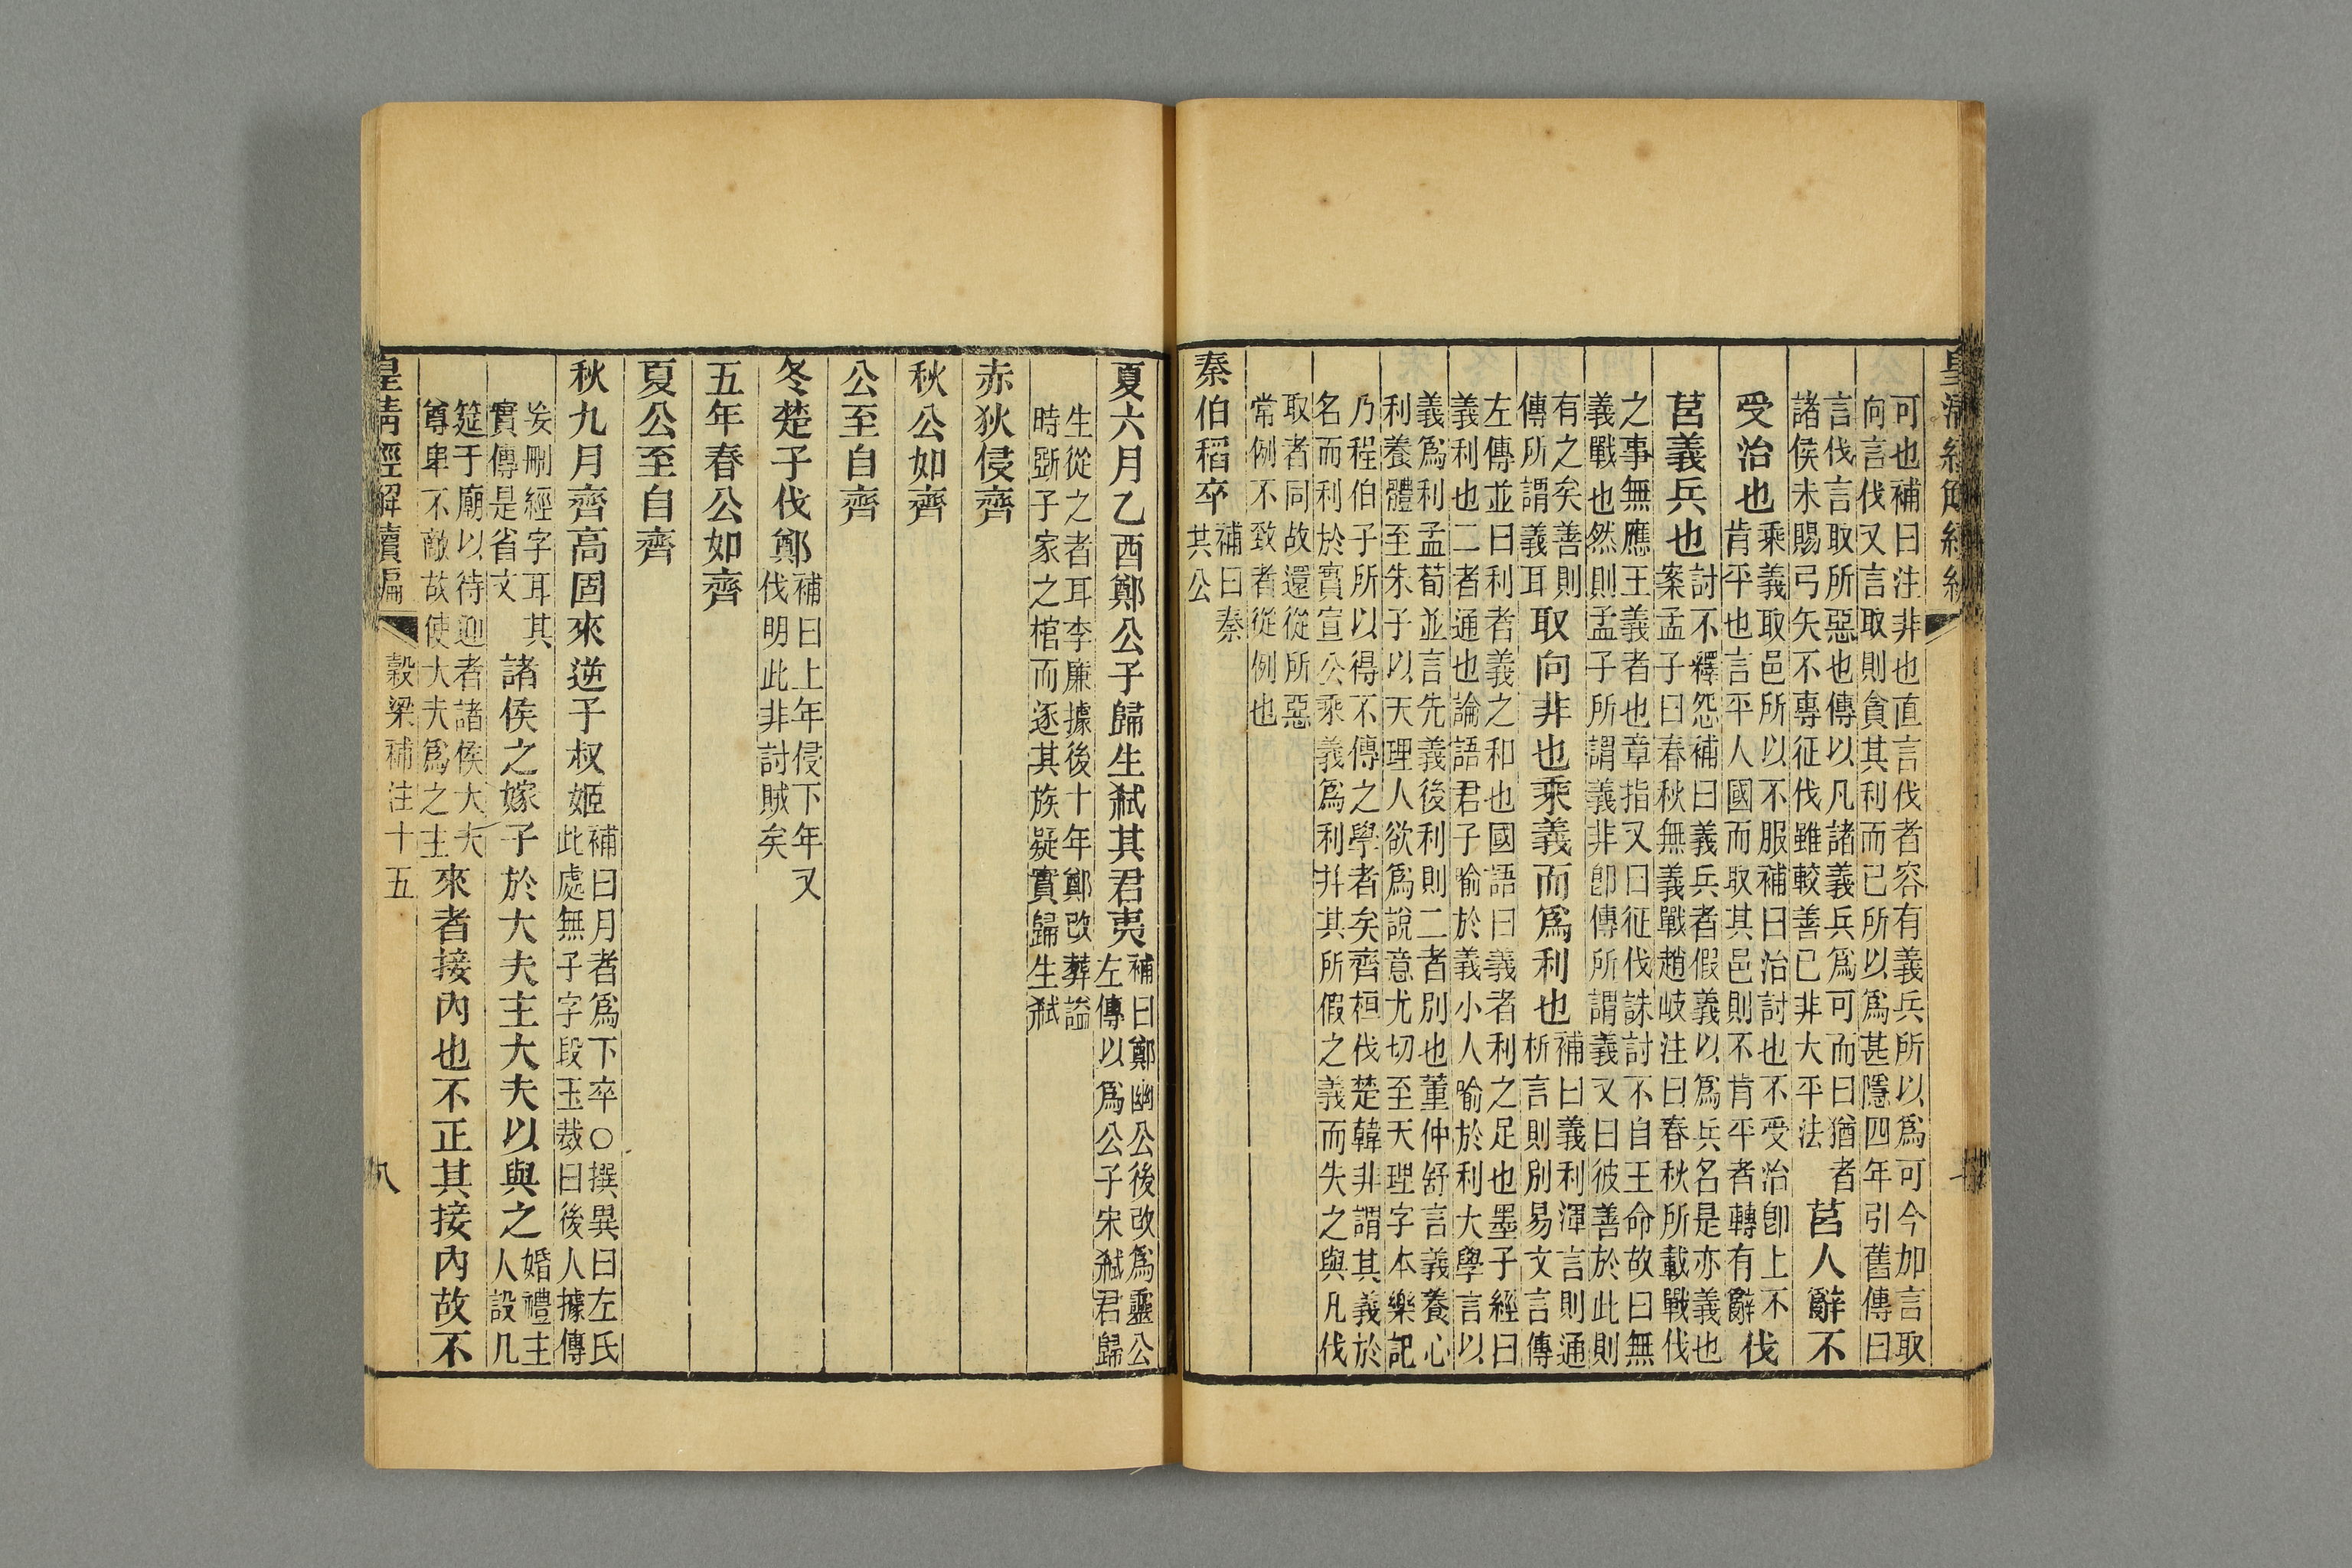 皇清經解續編
可也補曰注非也直言伐者容有義兵所以爲可今加言取
向言伐又言取則貪其利而已所以爲甚隱四年引舊傳曰
言伐言取所惡也傳以凡諸義兵爲可而曰猶者
諸侯未賜弓矢不專征伐雖較善已非大平法
莒人辭不
受治也
乘義取邑所以不服補曰治討也不受治卽上不
肯平也言平人國而取其邑則不肯平者轉有辭
伐
莒義兵也
討不釋怨補曰義兵者假義以爲兵名是亦義也
案孟子曰春秋無義戰趙岐注曰春秋所載戰伐
之事無應王義者也章指又曰征伐誅討不自王命故曰無
義戰也然則孟子所謂義非卽傳所謂義又曰彼善於此則
有之矣善則
傳所謂義耳
取向非也乘義而爲利也
補曰義利渾言則通
析言則別易文言傳
左傳並曰利者義之和也國語曰義者利之足也墨子經曰
義利也二者通也論語君子喻於義小人喻於利大學言以
義爲利孟荀並言先義後利則二者別也董仲舒言義養心
利養體至朱子以天理人欲爲說意尤切至天理字本樂記
乃程伯子所以得不傳之學者矣齊桓伐楚韓非謂其義於
名而利於實宣公乘義爲利幷其所假之義而失之與凡伐
取者同故還從所惡
常例不致者從例也
秦伯稻卒
補曰秦
共公
夏六月乙酉鄭公子歸生弑其君夷
補曰鄭幽公後改爲靈公
左傳以爲公子宋弑君歸
生從之者耳李廉據後十年鄭改葬謚
時斲子家之棺而逐其族疑實歸生弑
赤狄侵齊
秋公如齊
公至自齊
冬楚子伐鄭
補曰上年侵下年又
伐明此非討賊矣
五年春公如齊
夏公至自齊
秋九月齊高固來逆子叔姬
補曰月者爲下卒○撰異曰左氏
此處無子字段玉裁曰後人據傳
妄刪經字耳其
實傳是省文
諸侯之嫁子於大夫主大夫以與之
婚禮主
人設几
筵于廟以待迎者諸侯大夫
尊卑不敵故使大夫爲之主
來者接內也不正其接內故不
皇清經解續編
穀梁補注十五
八